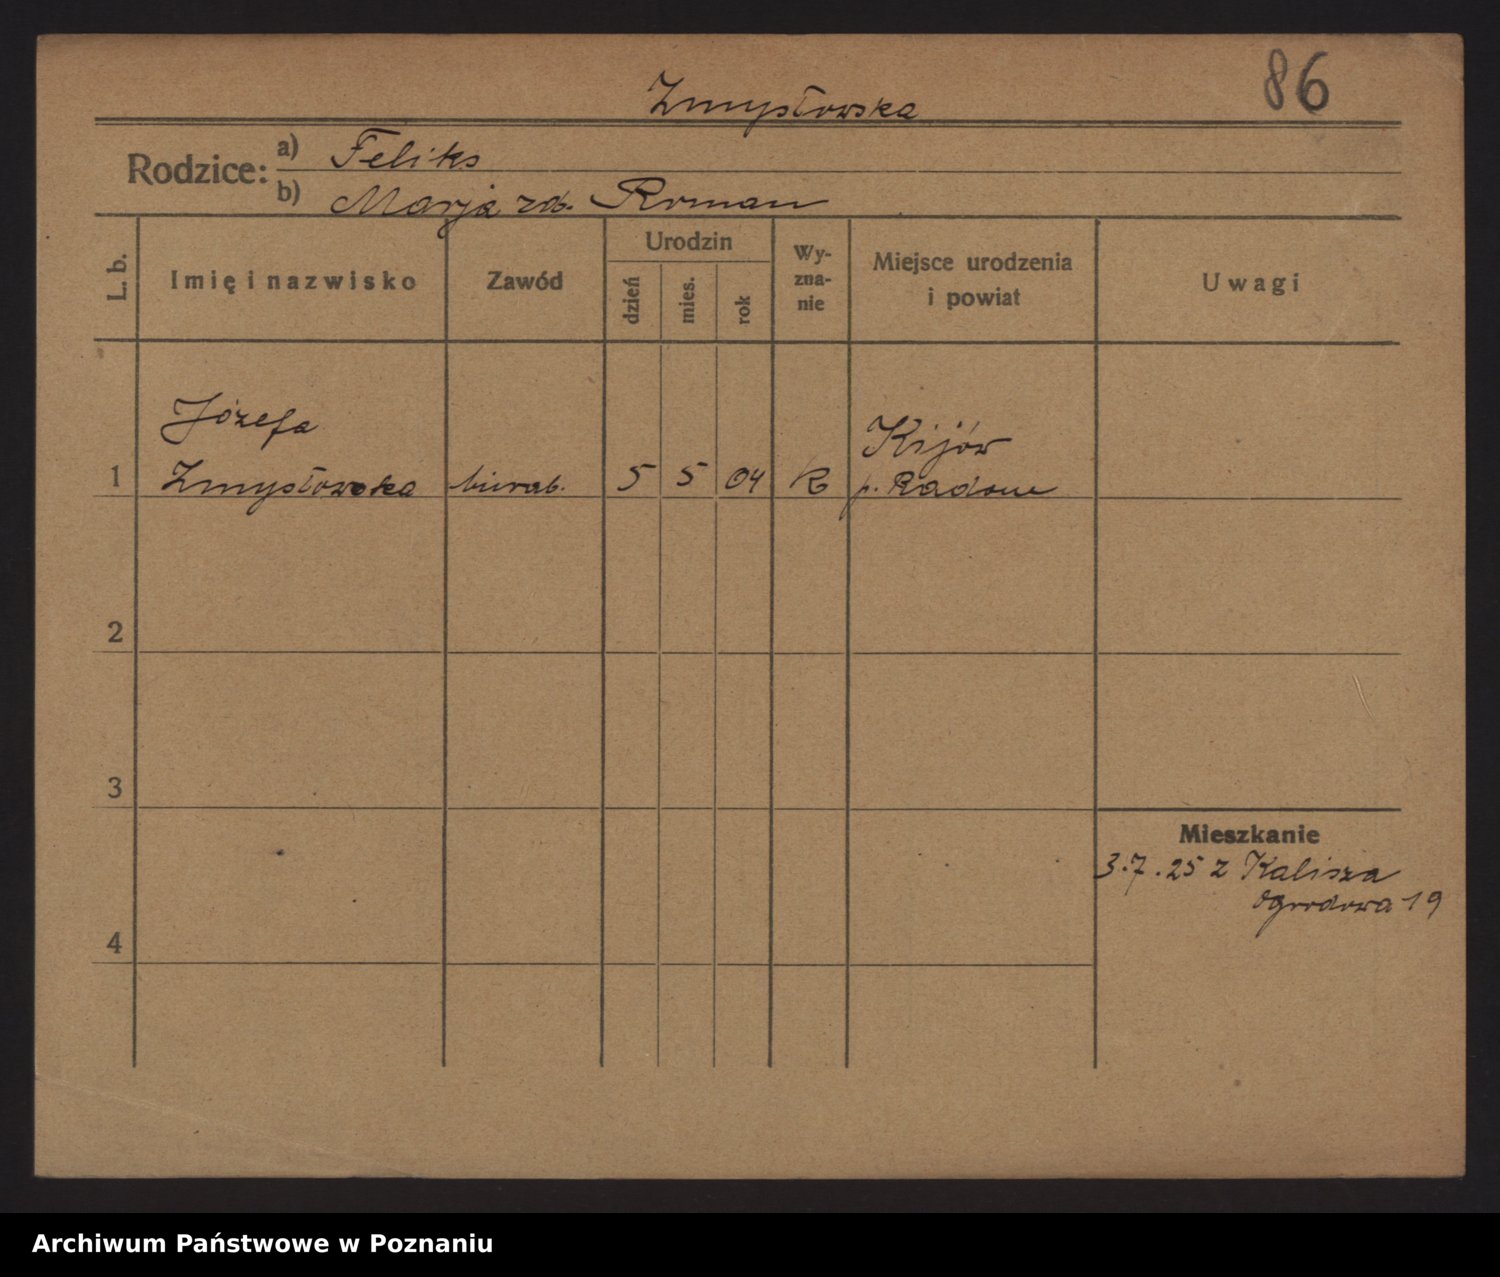 86
Zmysłowska
Rodzice:
a) Feliks
b) Marja zd. Roman
L. b.
Imię i nazwisko
Zawód
Urodzin
dzień
mies.
rok
Wy-
zna-
nie
Miejsce urodzenia
i powiat
Uwagi
Józefa
Kijów
1 Zmysłowska 5 5 04 k p. Radom
2
3
Mieszkanie
3.7.25 z Kalisza
Ogrodowa 19
4
Archiwum Państwowe w Poznaniu